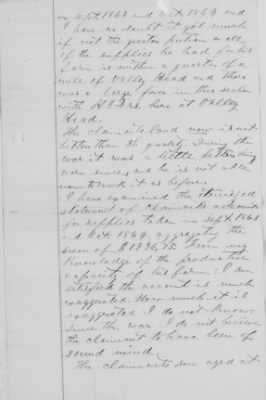 in Sept. 1863 and Oct. 1864 and
I have no doubt it got much
if not the greater portion or all
of the supplies he had for his
farm is within a quarter of a
mile of Valley Head and there
was a large force in this section
with Hd Qrs. here at Valley
Head.
The claimants land now is not
better than 3d quality. During the
war it was a little better being
worn since, and he is not able
now to work it as before.
I have examined the itemized
statement of claimants accounts
for supplies taken in Sept. 1863
and Oct. 1864, aggregating the
sum of $1936.75. From my
knowledge of the productive
capacity of his farm I am
satisfied the account is much
exaggerated. How much it is
exaggerated I do not know.
Since the war I do not believe
the claimant to have been of
sound mind.
The claimants son aged at